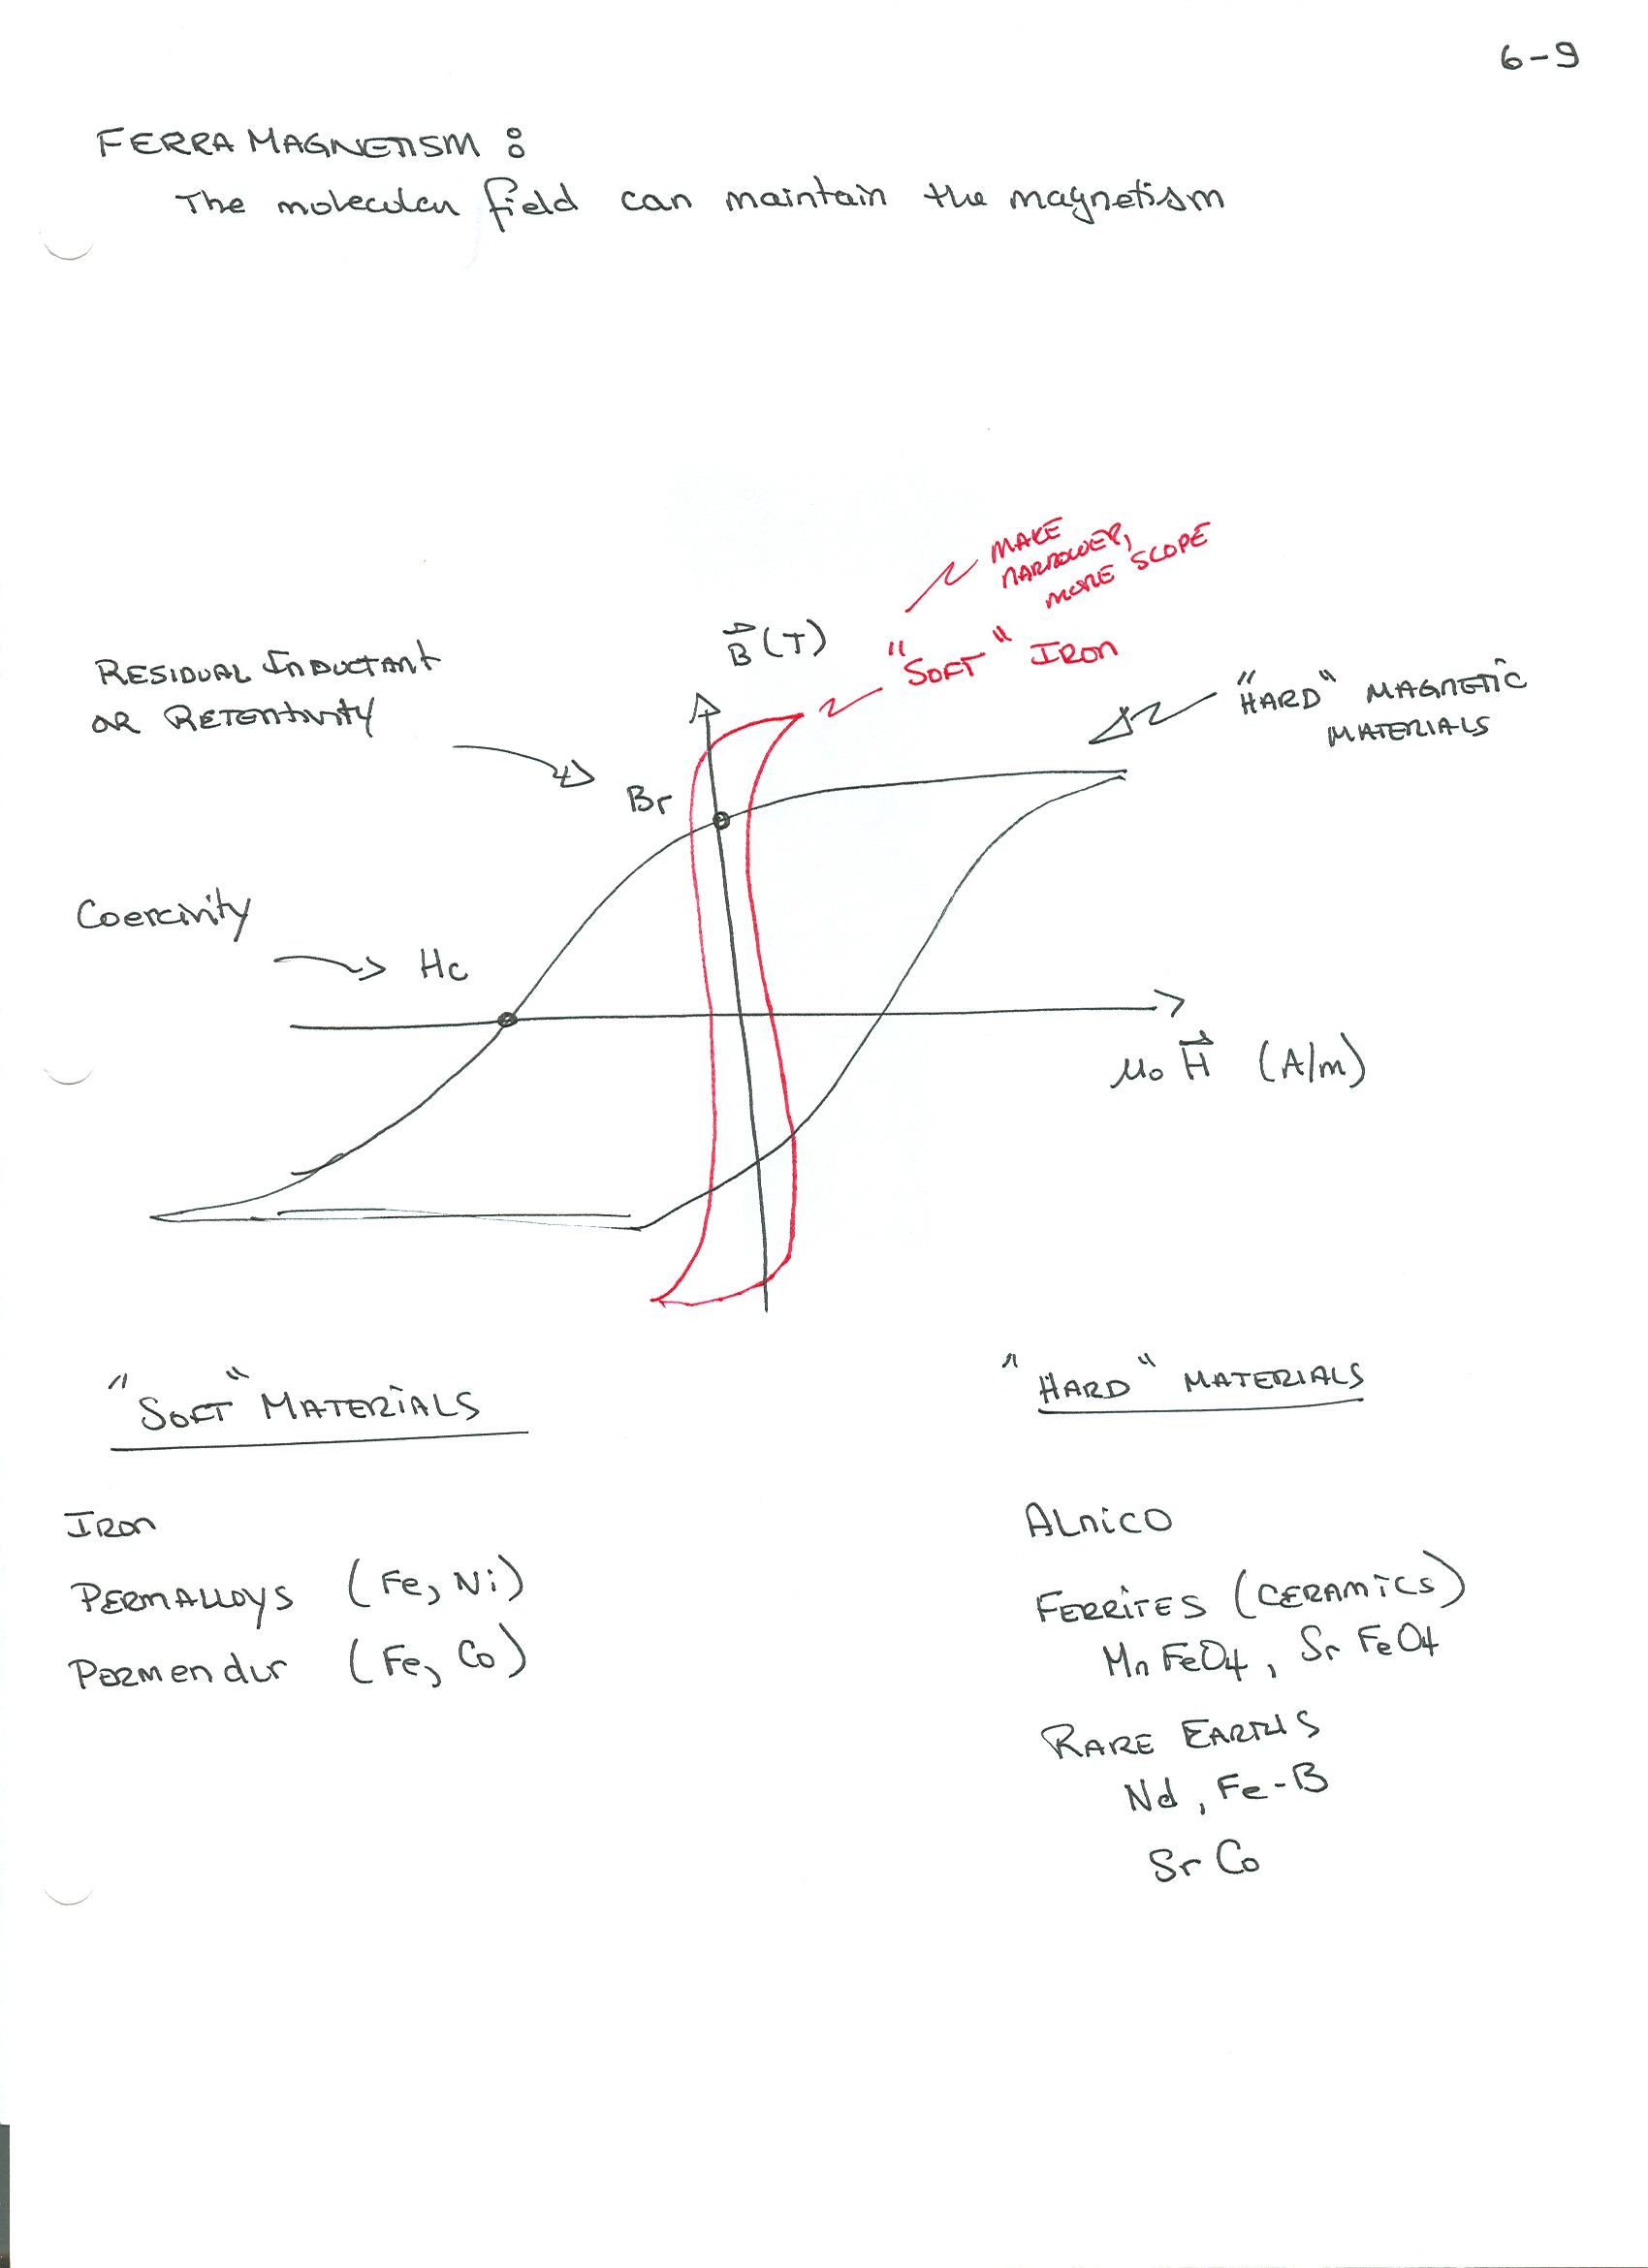 6-9
FERRA MAGNETISM :
The molecular field can maintain the magnetism
MAKE
NARROWER,
MORE SCOPE
B (T)
"SOFT" IRON
RESIDUAL INDUCTANT
OR RETENTIVITY
"HARD" MAGNETIC
MATERIALS
Br
Coercivity
Hc
μ₀ H (A/m)
"SOFT" MATERIALS
IRON
PERMALLOYS (Fe, Ni)
PERMENDUR (Fe, Co)
"HARD" MATERIALS
ALNICO
FERRITES (CERAMICS)
MnFeO4, SrFeO4
RARE EARTHS
Nd, Fe-B
SrCo